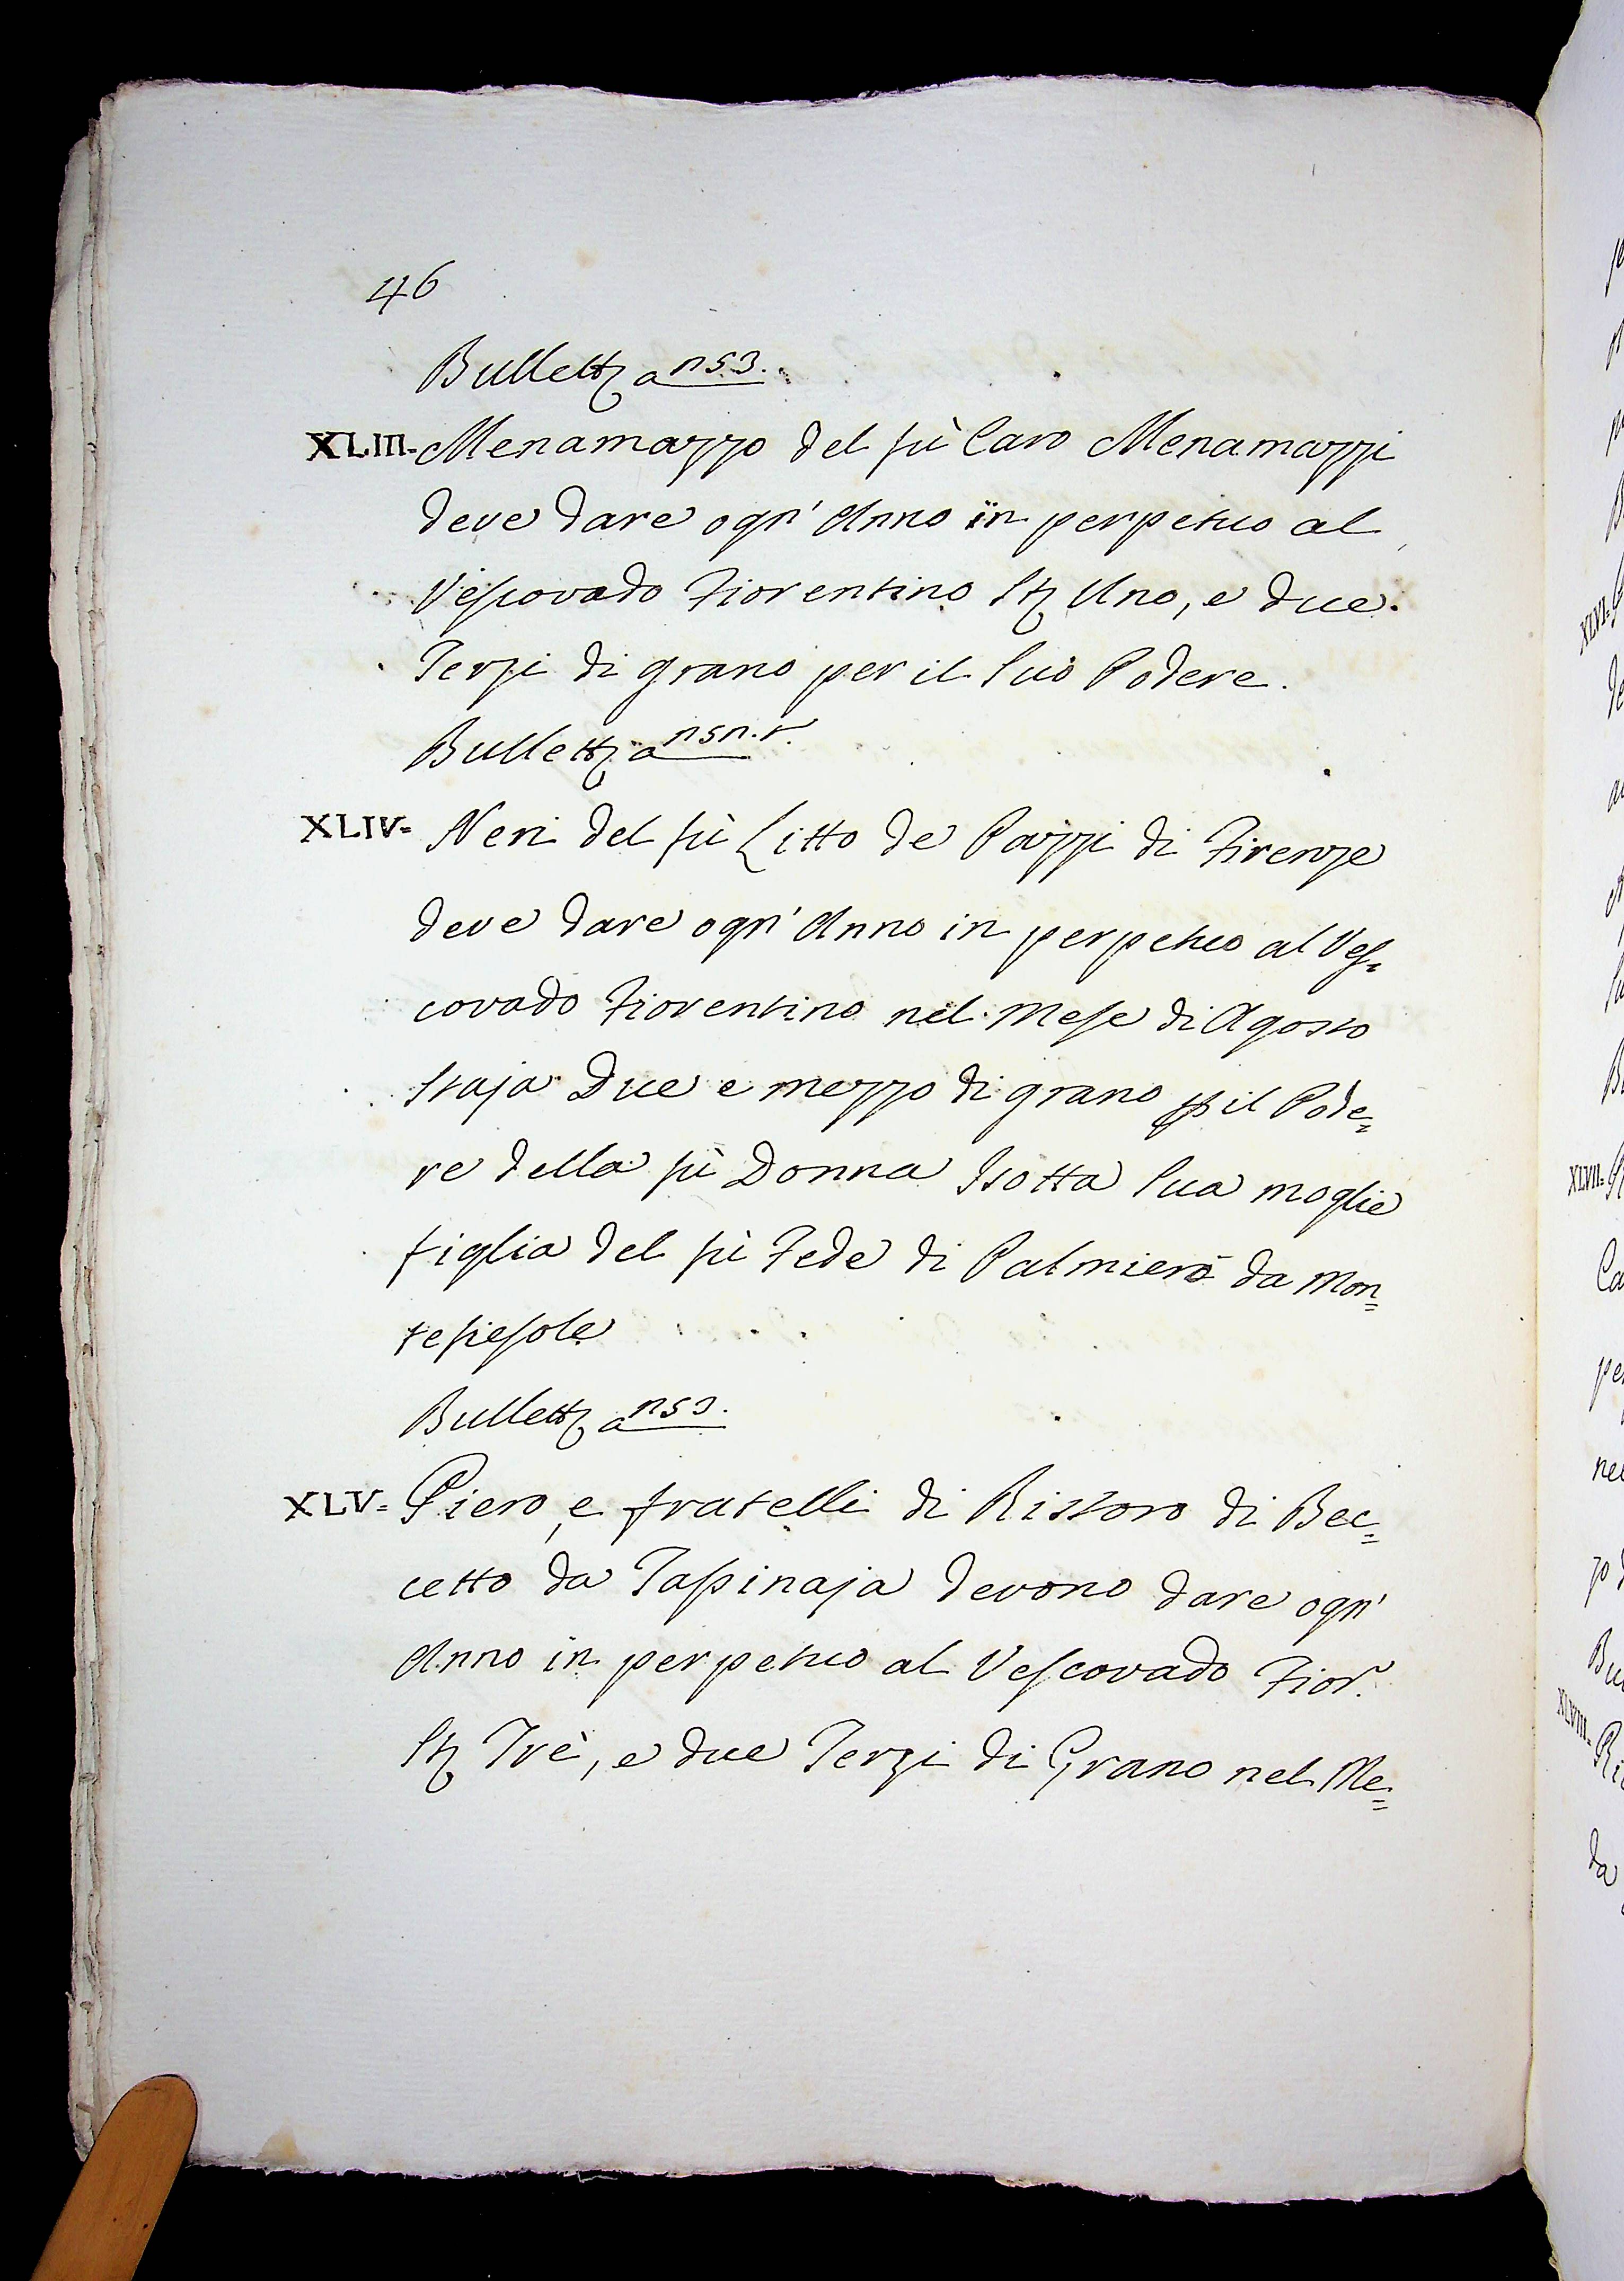 46
Bullett a
XLIII- Menamazzo del fù Caro Menamazzi
deve dare ogn' Anno in perpetuo al
Vescovado Fiorentino St Uno, e due
Terzi di grano per il suo Podere.
Bullett a
XLIV= Neri del fù Litto de Pazzi di Firenze
deve dare ogn' Anno in perpetuo al Ves=
covado Fiorentino nel Mese di Agosto
staja Due e mezzo di grano p il Pode=
re della fù Donna Isotta sua moglie
figlia del fù Fede di Palmiero da Mon=
tefiesole
Bullett a
XLV= Piero, e fratelli di Ristoro di Bec=
cetto da Tassinaja devono dare ogn'
Anno in perpetuo al Vescovado Fior.
St Trè, e due Terzi di Grano nel Me=
XLVI=
XLVII=
XLVIII=